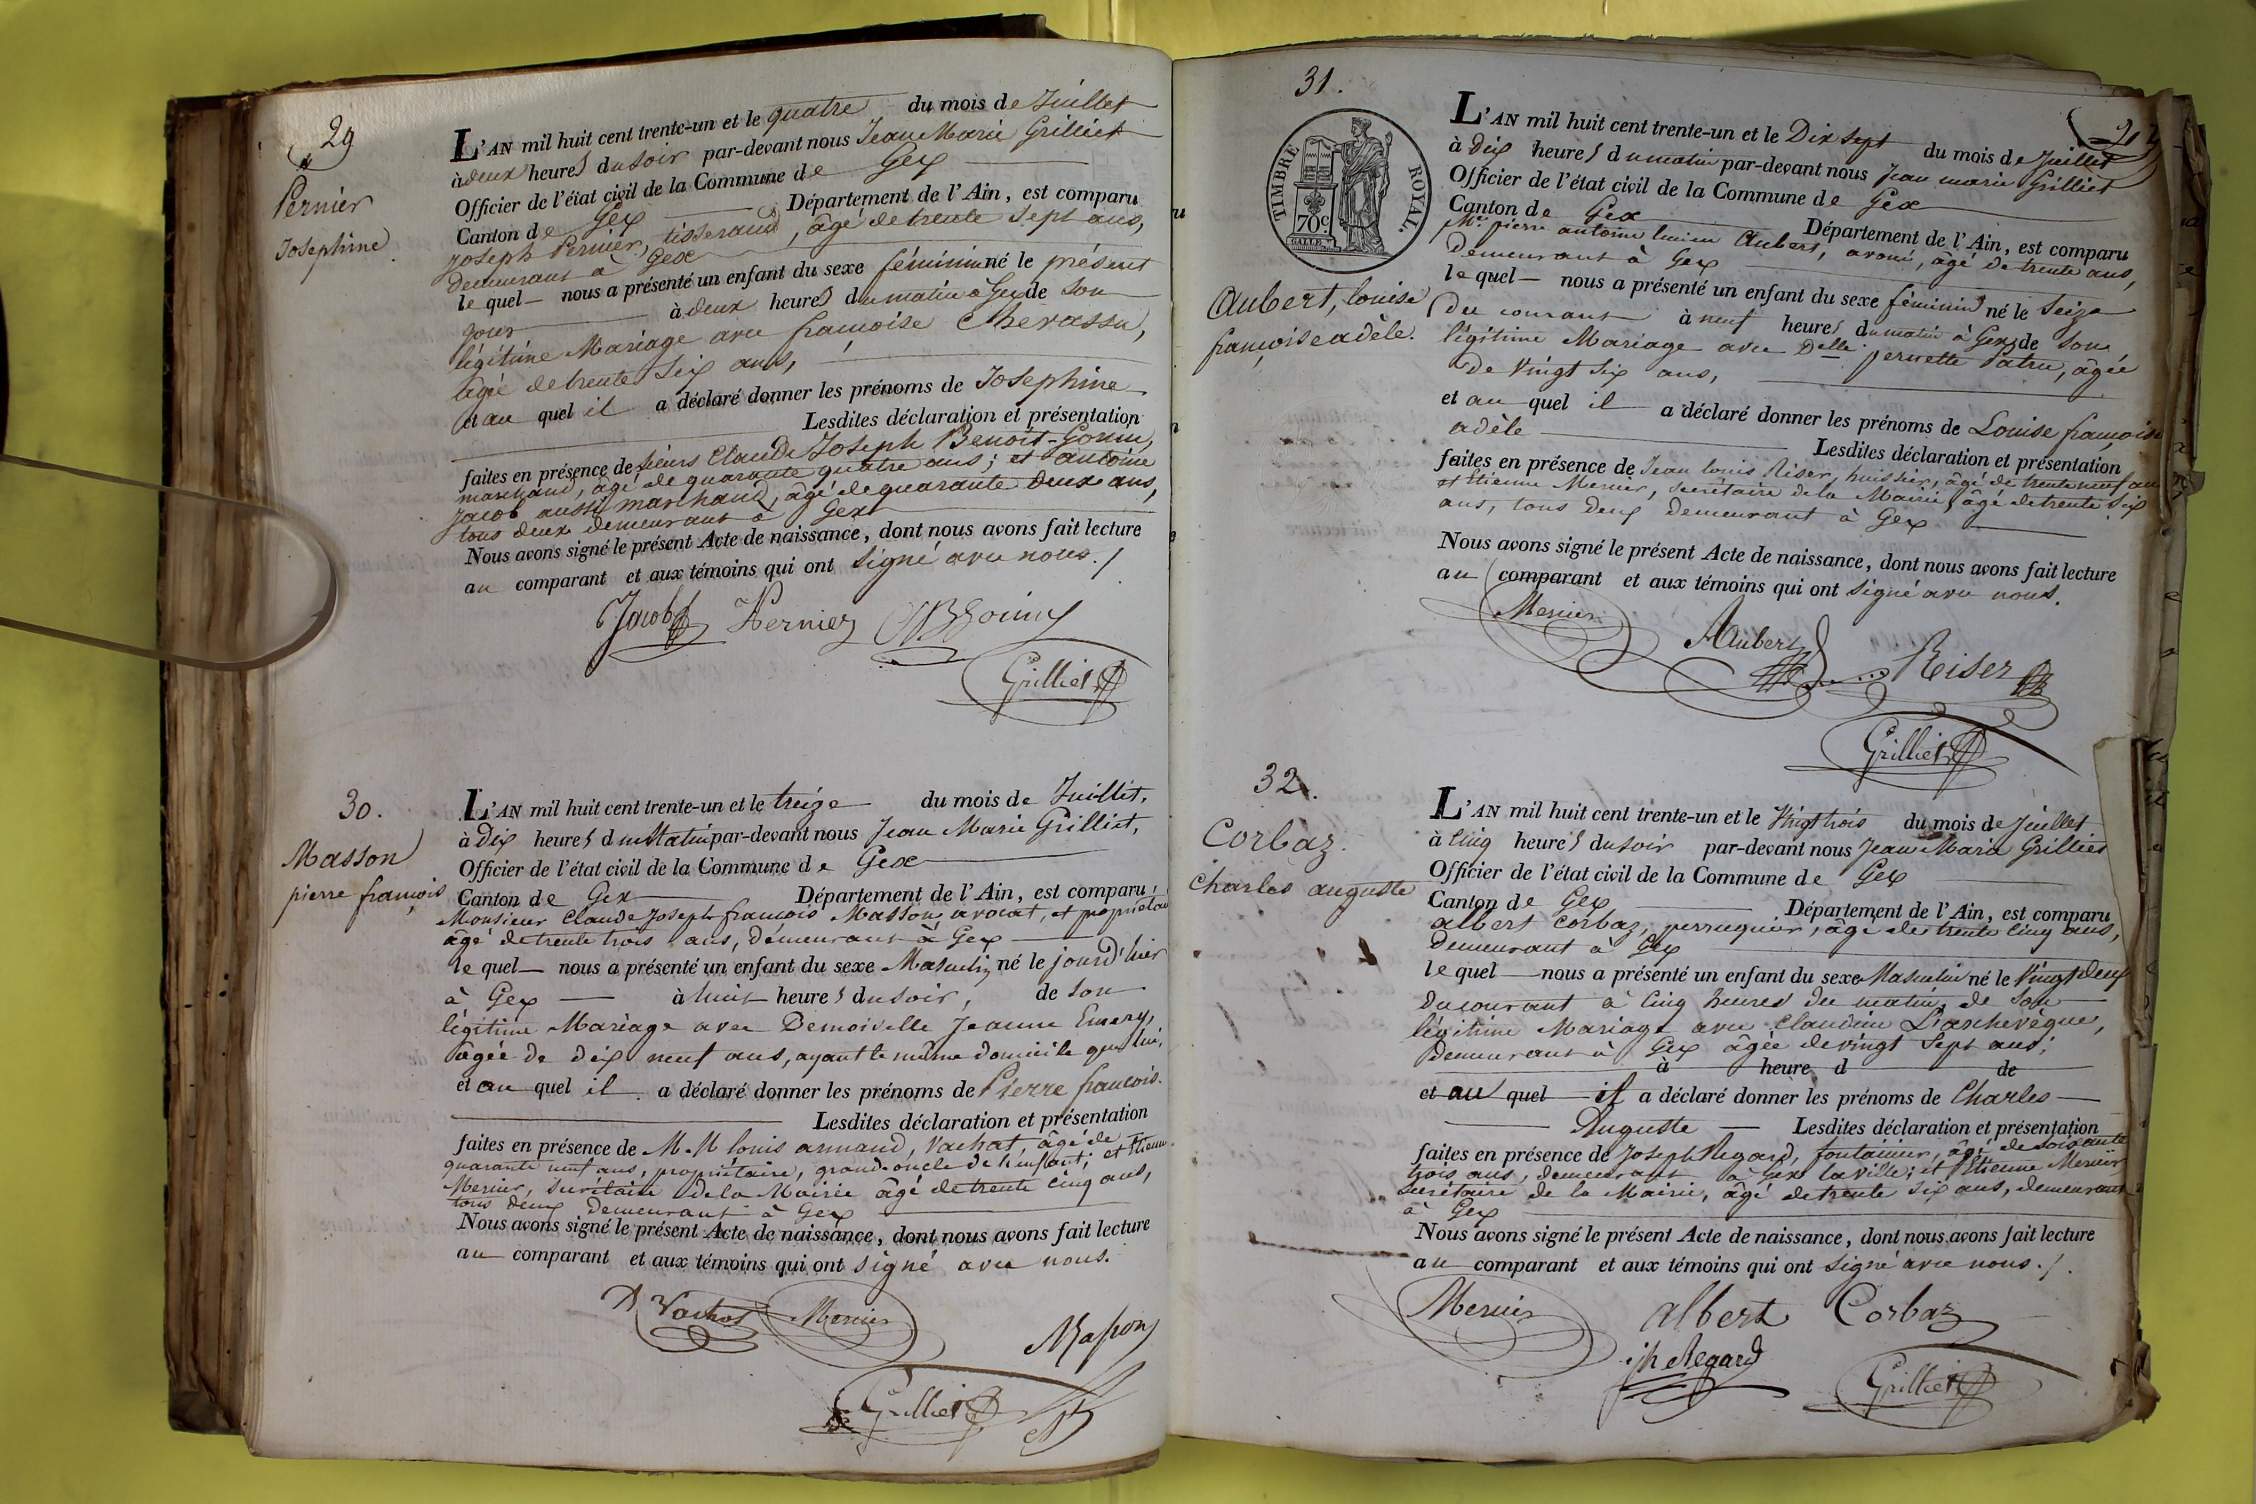 29
Pernier
Josephine.
L'AN mil huit cent trente-un et le quatre du mois de Juillet
à deux heures du soir par-devant nous Jean Marie Grilliet
Officier de l'état civil de la Commune de Gex
Canton de Gex Département de l'Ain, est comparu
Joseph Pernier, tisserand, âgé de trente sept ans,
demeurant à Gex
le quel nous a présenté un enfant du sexe féminin né le présent
jour à deux heures du matin à Gex de son
légitime Mariage avec françoise Chevassu,
âgée de trente six ans,
et au quel il a déclaré donner les prénoms de Josephine
Lesdites déclaration et présentation
faites en présence de sieurs Claude Joseph Benoit-Gonin,
marchand, âgé de quarante quatre ans; et antoine
Jacob aussi marchand, âgé de quarante deux ans,
tous deux demeurant à Gex
Nous avons signé le présent Acte de naissance, dont nous avons fait lecture
au comparant et aux témoins qui ont signé avec nous. /
Jacob Pernier
Grilliet
30.
Masson
pierre françois
L'AN mil huit cent trente-un et le treize du mois de Juillet,
à dix heures du Matin par-devant nous Jean Marie Grilliet,
Officier de l'état civil de la Commune de Gex
Canton de Gex Département de l'Ain, est comparu
Monsieur Claude Joseph françois Masson, avocat, et propriétaire
âgé de trente trois ans, demeurant à Gex
le quel nous a présenté un enfant du sexe Masculin né le jourd'hier
à Gex à huit heures du soir, de son
légitime Mariage avec Demoiselle Jeanne Emery,
âgée de dix neuf ans, ayant le même domicile que lui,
et au quel il a déclaré donner les prénoms de Pierre françois.
Lesdites déclaration et présentation
faites en présence de M.M louis armand, Vachat, âgé de
quarante neuf ans, propriétaire, grand-oncle de l'enfant; et Etienne
Mercier, secrétaire de la Mairie âgé de trente cinq ans,
tous deux demeurant à Gex
Nous avons signé le présent Acte de naissance, dont nous avons fait lecture
au comparant et aux témoins qui ont signé avec nous.
Vachat Mercier Masson
Grilliet
31.
TIMBRE ROYAL.
70c
GALLE
Aubert, louise
françoise adèle.
L'AN mil huit cent trente-un et le Dix sept du mois de Juillet
à dix heures du matin par-devant nous Jean marie Grilliet
Officier de l'état civil de la Commune de Gex
Canton de Gex Département de l'Ain, est comparu
Mr. pierre antoine lucien Aubert, avoué, âgé de trente ans,
Demeurant à Gex
le quel nous a présenté un enfant du sexe féminin né le Seize
du courant à neuf heures du matin à Gex, de son
légitime Mariage avec Delle perrette Patru, âgée
de Vingt six ans,
et au quel il a déclaré donner les prénoms de Louise françoise
adèle
Lesdites déclaration et présentation
faites en présence de Jean louis Riser, huissier, âgé de trente neuf ans
et Etienne Mercier, secrétaire de la Mairie, âgé de trente six
ans, tous deux demeurant à Gex
Nous avons signé le présent Acte de naissance, dont nous avons fait lecture
au comparant et aux témoins qui ont signé avec nous.
Mercier Aubert Riser
Grilliet
32.
Corbaz.
Charles auguste
L'AN mil huit cent trente-un et le Vingt trois du mois de Juillet
à cinq heures du soir par-devant nous Jean Marie Grilliet
Officier de l'état civil de la Commune de Gex
Canton de Gex Département de l'Ain, est comparu
albert Corbaz, perruquier, âgé de trente cinq ans,
demeurant à Gex
le quel nous a présenté un enfant du sexe Masculin né le Vingt deux
du courant à cinq heures du matin, de son
légitime Mariage avec Claudine L'archevêque,
Demeurant à Gex âgée de vingt sept ans;
à heure d de
et au quel il a déclaré donner les prénoms de Charles
Auguste Lesdites déclaration et présentation
faites en présence de Joseph Regard, fontainier, âgé de soixante
trois ans, demeurant à Gex la ville; et Etienne Mercier
Secrétaire de la Mairie, âgé de trente six ans, demeurant
à Gex
Nous avons signé le présent Acte de naissance, dont nous avons fait lecture
au comparant et aux témoins qui ont signé avec nous. /.
Mercier albert Corbaz
jh Regard
Grilliet